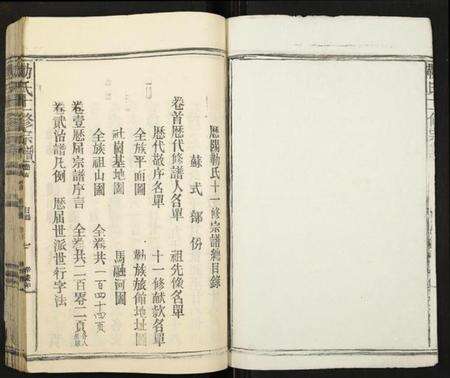 歷陽勒氏十一修宗譜總目錄
蘇式部份
卷首歷代修譜人名單 祖先像名單
歷代敘序名單 十一修献款名單
全族平面圖 勒族旅俻地址圖
社樹基地圖 馬融河圖
全族祖山圖 全卷共一百四十四頁
卷壹歷屆宗譜序言 全卷共二百零二頁
卷貳治譜凡例 歷屆世派世行字法
勒氏十一修宗譜